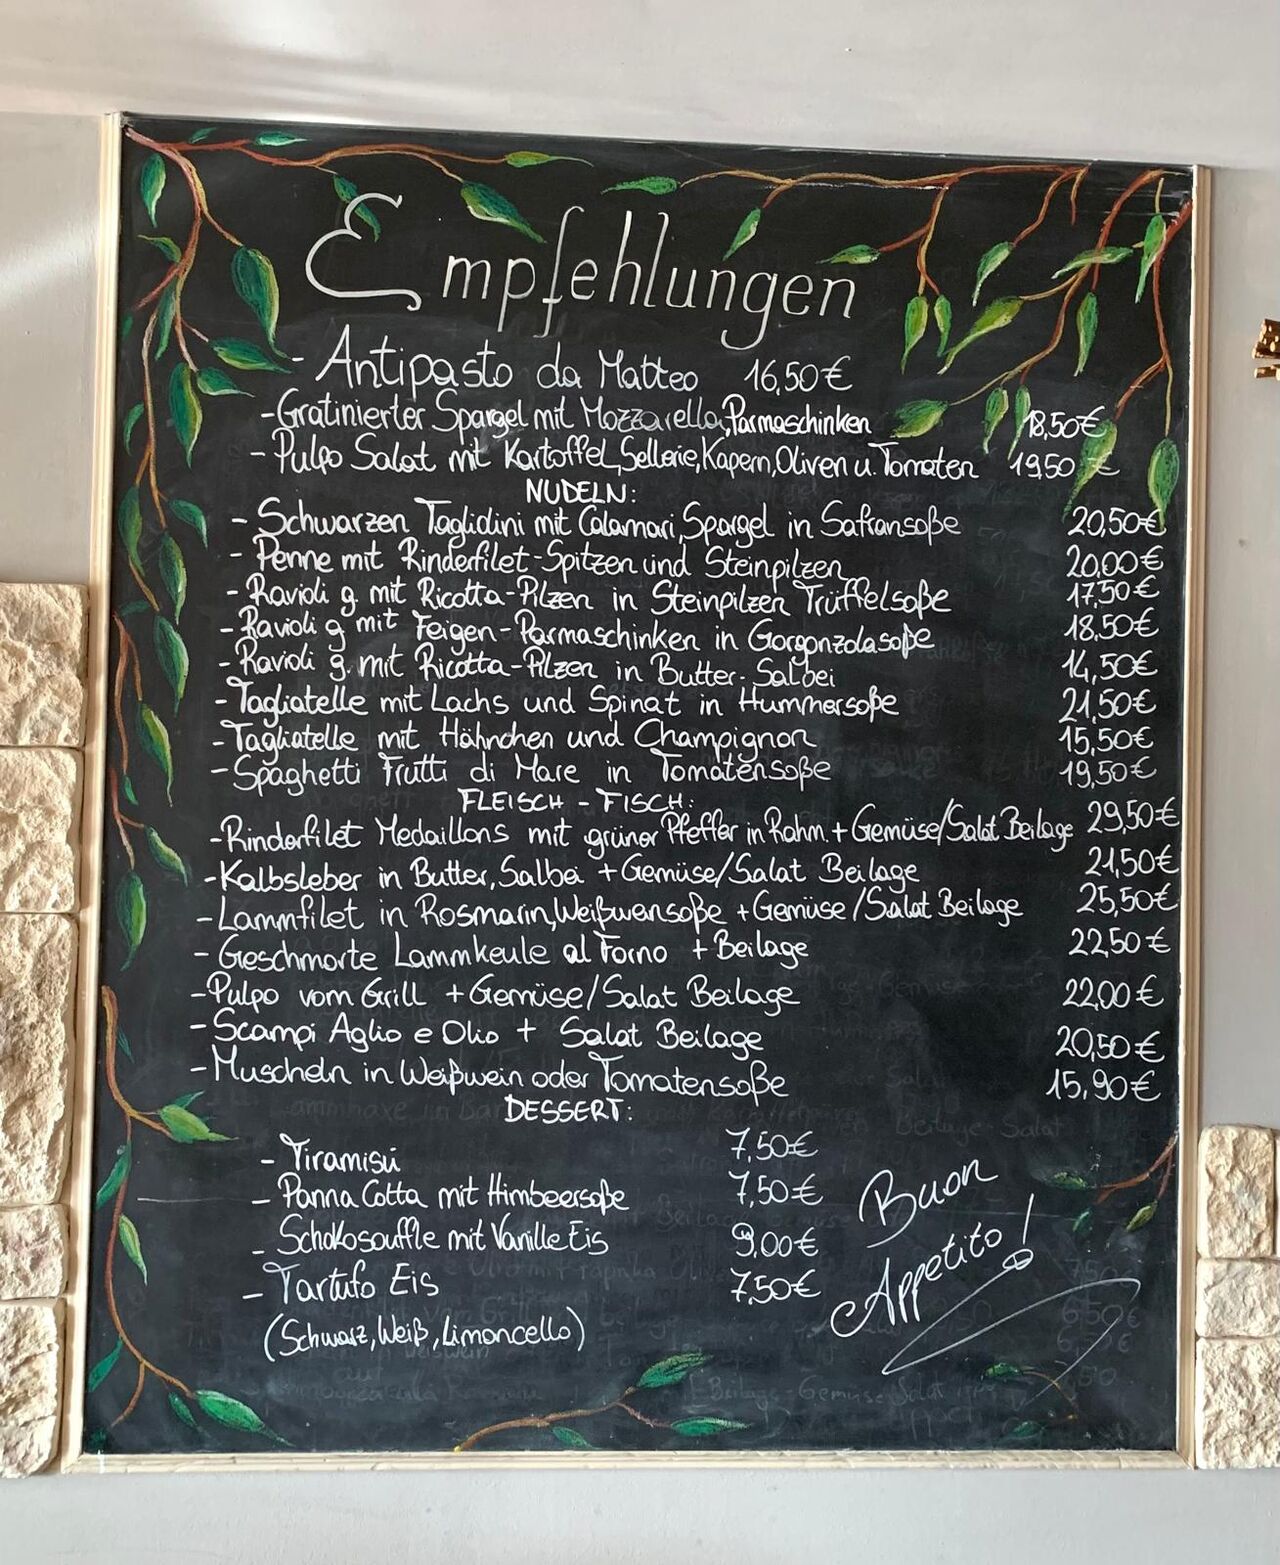 Empfehlungen
- Antipasto da Matteo 16,50€
- Gratinierter Spargel mit Mozzarella, Parmaschinken 18,50€
- Pulpo Salat mit Kartoffel, Sellerie, Kapern, Oliven u. Tomaten 19,50 €
NUDELN:
- Schwarzen Taglidini mit Calamari, Spargel in Safransoße 20,50€
- Penne mit Rinderfilet-Spitzen und Steinpilzen 20,00€
- Ravioli g. mit Ricotta-Pilzen in Steinpilzen Trüffelsoße 17,50€
- Ravioli g mit Feigen-Parmaschinken in Gorgonzolasoße 18,50€
- Ravioli g. mit Ricotta-Pilzen in Butter-Salbei 14,50€
- Tagliatelle mit Lachs und Spinat in Hummersoße 21,50€
- Tagliatelle mit Hähnchen und Champignon 15,50€
- Spaghetti Frutti di Mare in Tomatensoße 19,50€
FLEISCH - FISCH:
- Rinderfilet Medaillons mit grüner Pfeffer in Rahm + Gemüse/Salat Beilage 29,50€
- Kalbsleber in Butter, Salbei + Gemüse/Salat Beilage 21,50€
- Lammfilet in Rosmarin, Weißweinsoße + Gemüse/Salat Beilage 25,50€
- Geschmorte Lammkeule al Forno + Beilage 22,50€
- Pulpo vom Grill + Gemüse/Salat Beilage 22,00€
- Scampi Aglio e Olio + Salat Beilage 20,50€
- Muscheln in Weißwein oder Tomatensoße 15,90€
DESSERT:
- Tiramisú 7,50€
- Panna Cotta mit Himbeersoße 7,50€
- Schokosouffle mit Vanille Eis 9,00€
- Tartufo Eis 7,50€
(Schwarz, Weiß, Limoncello)
Buon
Appetito!